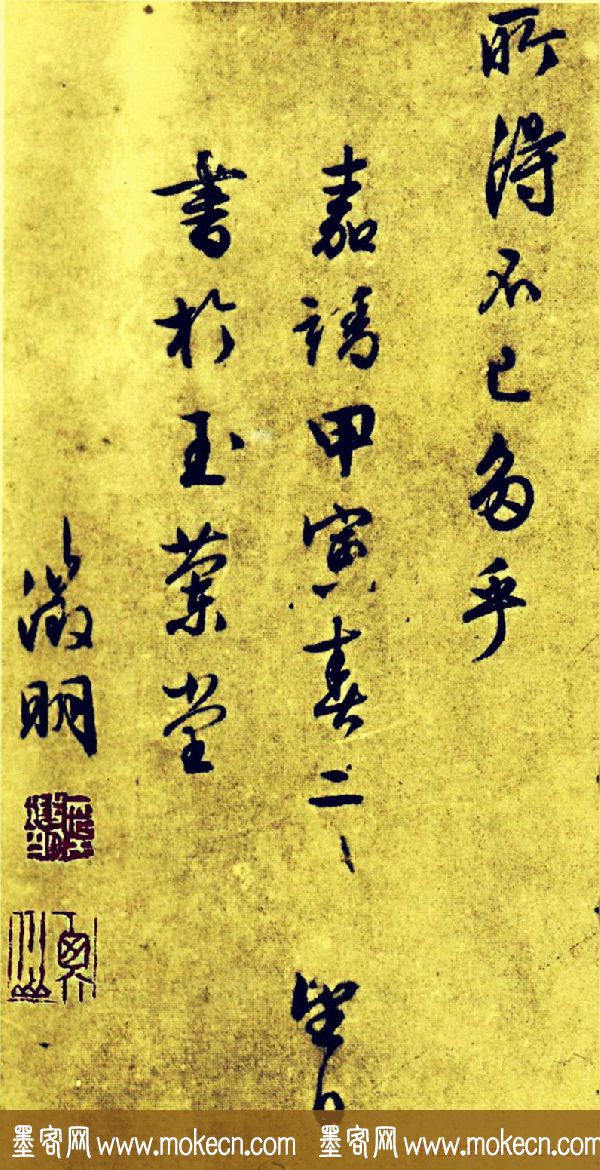 所得不已多乎
嘉靖甲寅春二望日
書於玉蘭堂
徵明
墨客网 www.mokecn.com 墨客网 www.mokecn.com